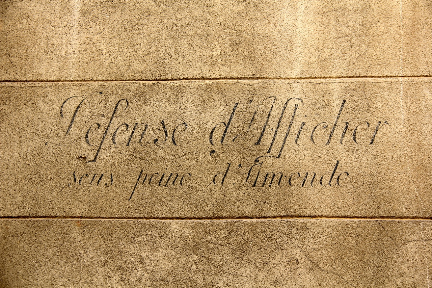 Défense d'Afficher
sous peine d'Amende